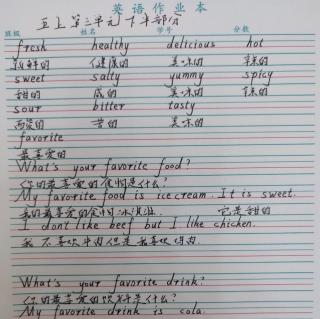 英语作业本
五上第三单元下半部分
班级 姓名 学号 分数
fresh healthy delicious hot
新鲜的 健康的 美味的 辣的
sweet salty yummy spicy
甜的 咸的 美味的 辣的
sour bitter tasty
酸的 苦的 美味的
favorite
最喜爱的
What's your favorite food?
你的最喜爱的食物是什么?
My favorite food is ice cream. It is sweet.
我的最喜爱的食物冰淇淋. 它是甜的
I don't like beef but I like chicken.
我不喜欢牛肉但是我喜欢鸡肉.
What's your favorite drink?
你的最喜爱的饮料是什么?
My favorite drink is cola.